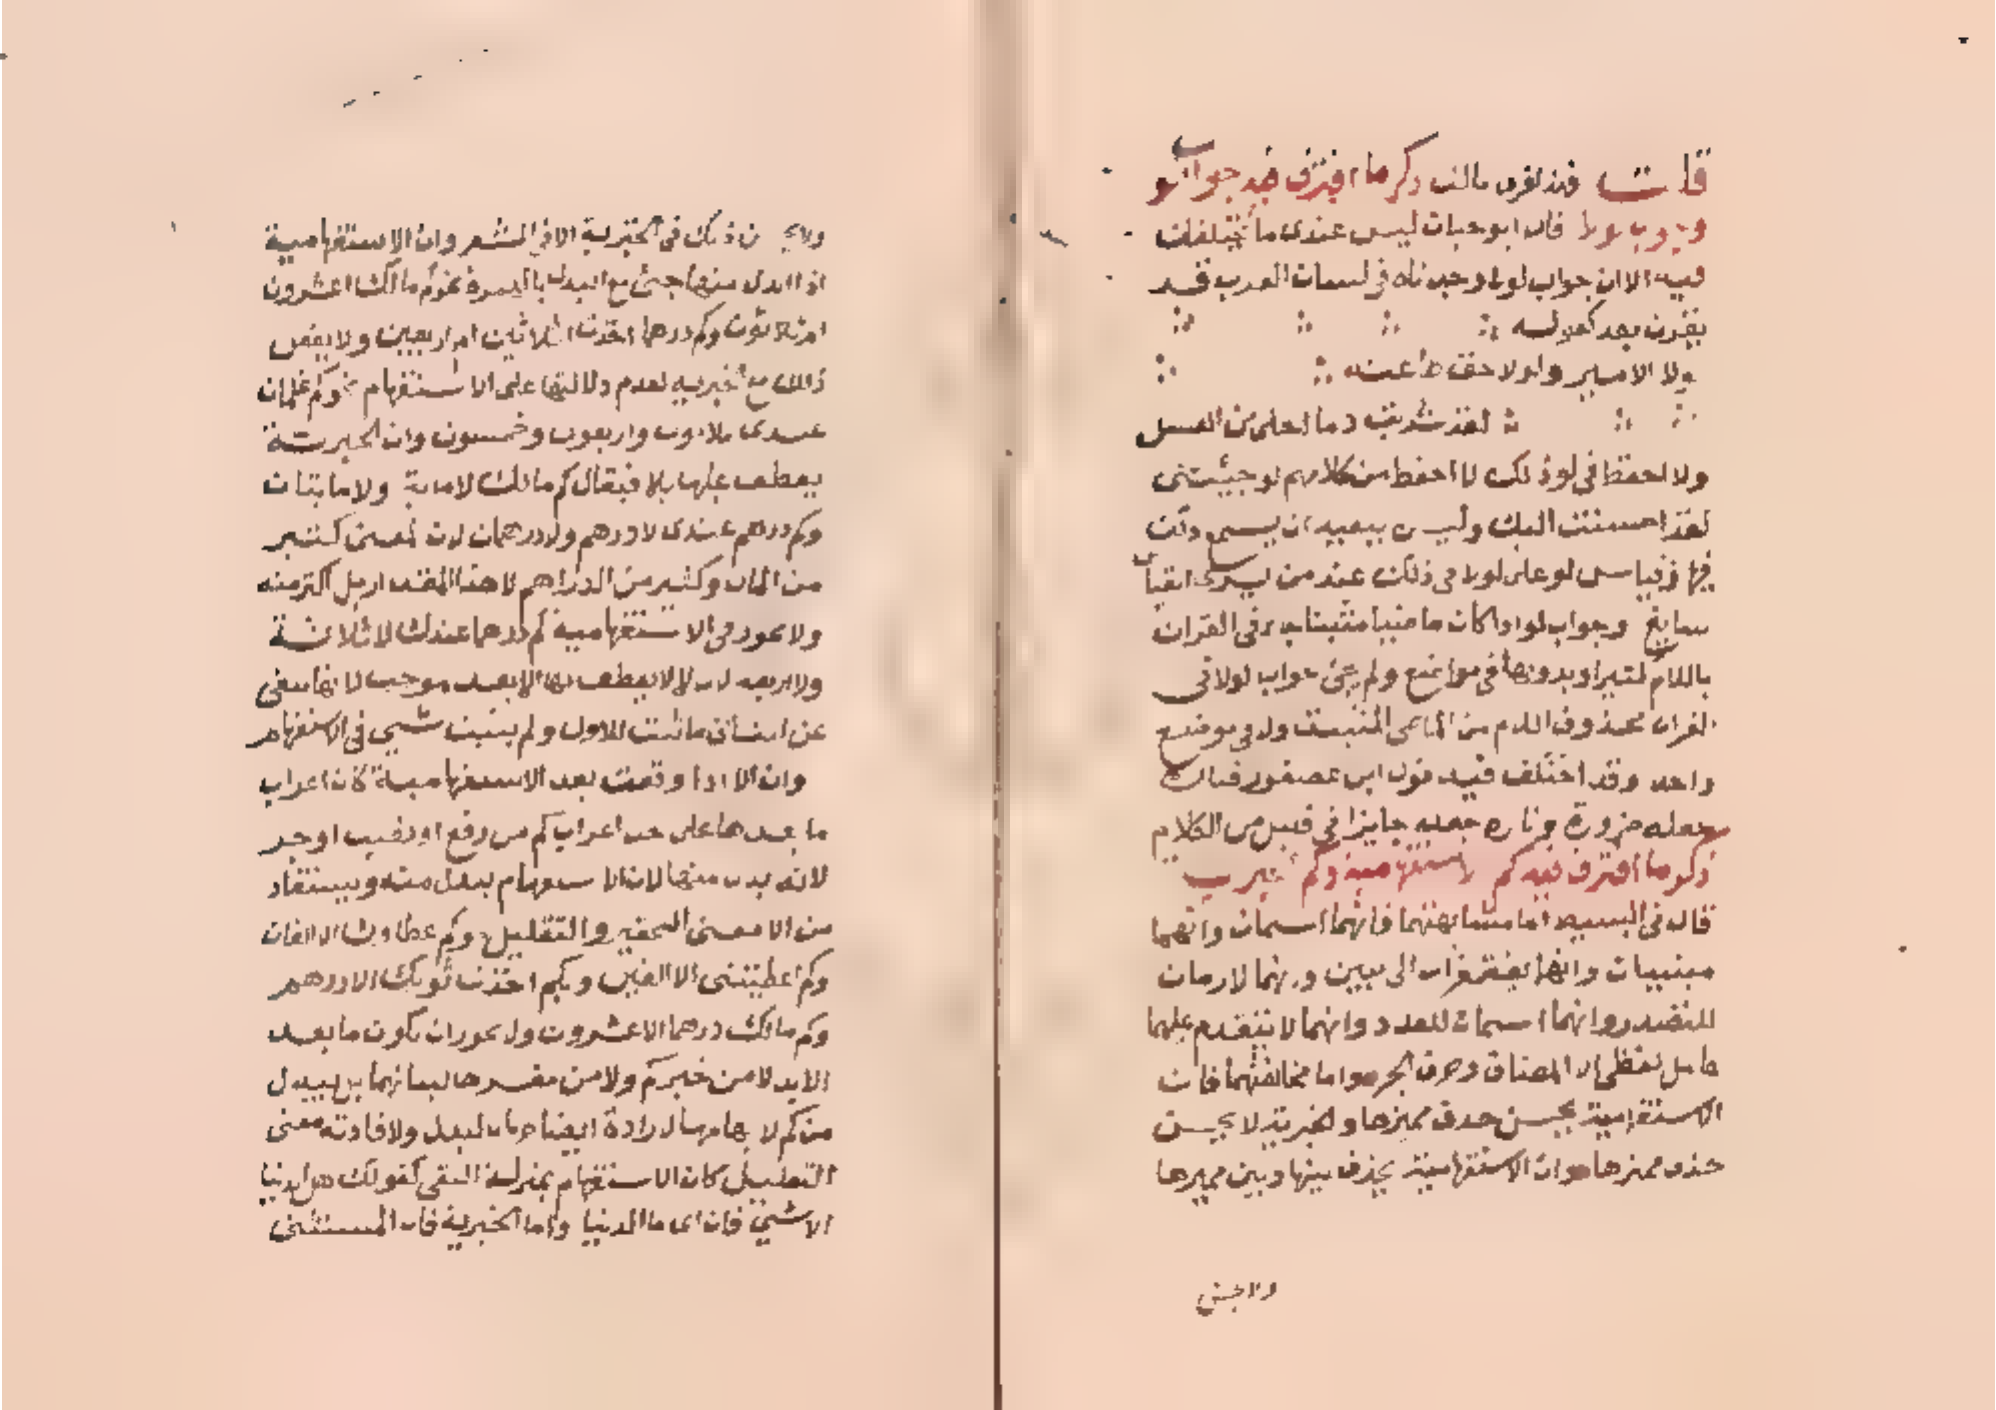 قلت فهذا فرق ثالث ذكر ما افترق فيه جواب لو
وجواب لولا قال ابو حيان ليس عندى ما يختلفان
فيه الا ان جواب لولا وجدناه فى لسان العرب قد
يقرن بقد كقوله
لولا الامير ولولا حق طاعته
لقد شربت دما احلى من العسل
ولا احفظ فى لو ذلك لا احفظ من كلامهم لو جيتنى
لقد احسنت اليك وليس ببعيد ان يسمع ذلك
فيها وقياس لو على لولا فى ذلك عند من يرى القياس
سايغ وجواب لو اذا كان ماضيا مثبتا جاء فى القران
باللام كثيرا وبدونها فى مواضع ولم يجئ جواب لولا فى
القران محذوف اللام من الماضى المثبت ولا فى موضع
واحد وقد اختلف فيه قول ابن عصفور فتارة
جعله ضرورة وتارة جعله جايزا فى قليل من الكلام
ذكر ما افترق فيه كم الاستفهامية وكم الخبرية
قال فى البسيط اما مشابهتهما فانهما اسمان وانهما
مبنيان وانهما يفتقران الى مبين وانهما لازمان
للتصدر وانهما اسمان للعدد وانهما لا يتقدم عليهما
عامل لفظى الا المضاف وحرف الجر واما مخالفتهما فان
الاستفهامية يحسن حذف مميزها والخبرية لا يحسن
حذف مميزها وان الاستفهامية يحذف بينها وبين مميزها
ولا يحسن
ولا يحسن ذلك فى الخبرية الا فى الشعر وان الاستفهامية
اذا ابدل منها جئ مع البدل بالهمزة نحو كم مالك اعشرون
ام ثلاثون وكم درهما اخذت اثلاثين ام اربعين ولا يفعل
ذلك مع الخبرية لعدم دلالتها على الاستفهام نحو كم غلمان
عندى ثلاثون واربعون وخمسون وان الخبرية
يعطف عليها بلا فيقال كم مالك لا مائة ولا مائتان
وكم درهم عندى لا درهم ولا درهمان لان المعنى كثير
من المال وكثير من الدراهم لا هذا المقدار بل اكثر منه
ولا يجوز فى الاستفهامية كم درهما عندك لا ثلاثة
ولا اربعة لان لا لا يعطف بها الا بعد موجب لانها تنفى
عن الثانى ما ثبت للاول ولم يثبت شى فى الاستفهام
وان الا اذا وقعت بعد الاستفهامية كان اعراب
ما بعدها على حد اعراب كم من رفع او نصب او جر
لانه بدل منها لان الاستفهام يبدل منه ويستفاد
من الا معنى التحقير والتقليل نحو كم عطاوك الا الفان
وكم اعطيتنى الا الفين وبكم اخذت ثوبك الا درهم
وكم مالك درهما الا عشرون ولا يجوز ان يكون ما بعد
الا بدلا من خبر كم ولا من مفسرها لبيانهما بل يبدل
من كم لابهامها لارادة ايضاحها بالبدل ولافادته معنى
التقليل كان الاستفهام بمنزلة النفى كقولك هل الدنيا
الا شئ فان اى ما الدنيا واما الخبرية فان المستثنى